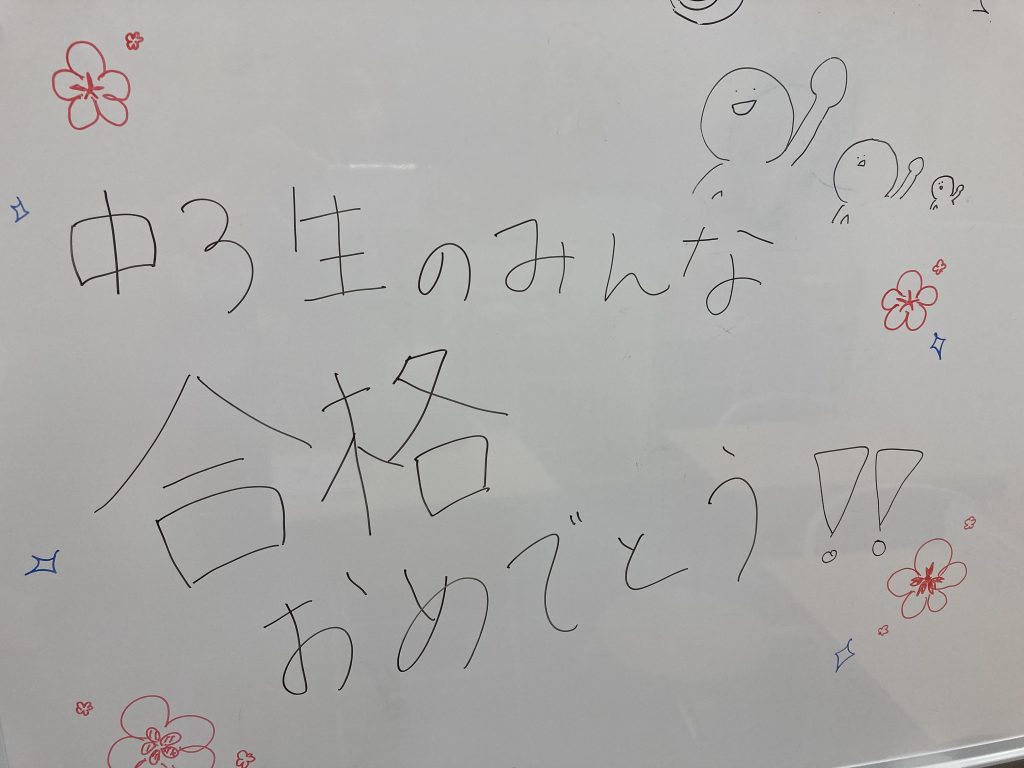 中3生のみんな
合格
おめでとう!!